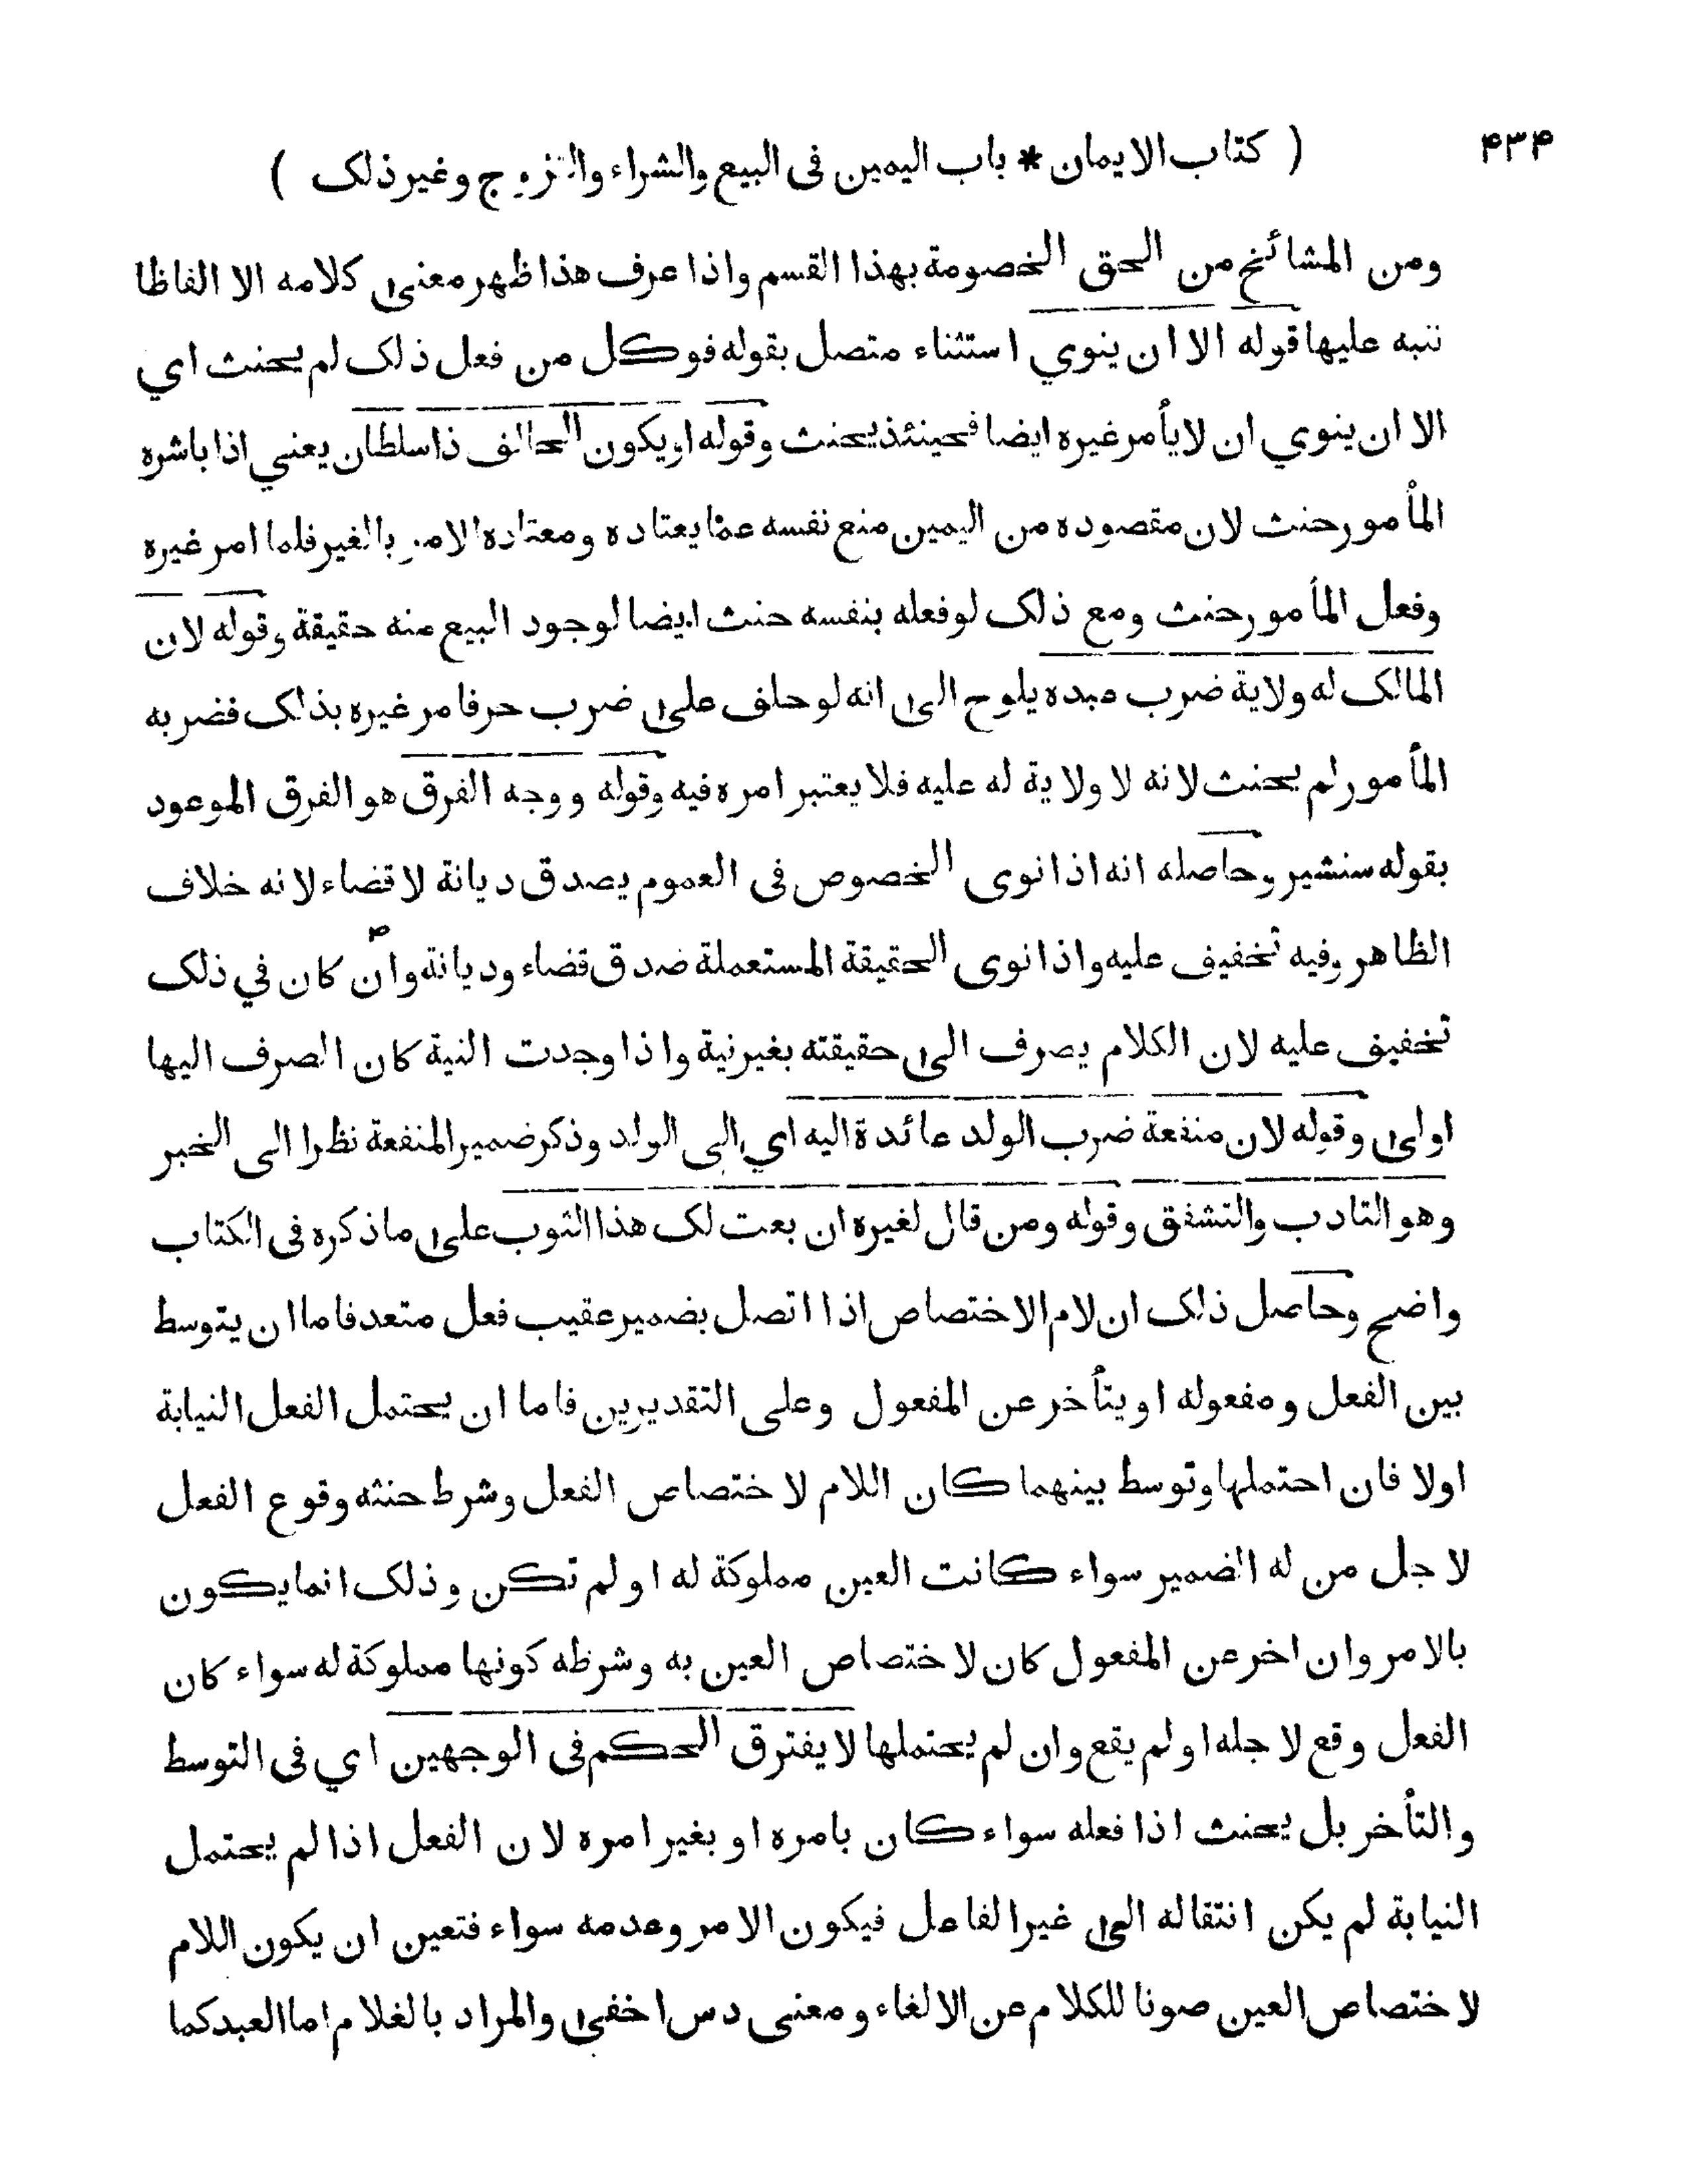 ۴۳۴
( كتاب الايمان * باب اليمين فى البيع والشراء والتزوج وغير ذلك )
ومن المشائخ من الحق الخصومة بهذا القسم واذا عرف هذا ظهر معنى كلامه الا الفاظا
ننبه عليها قوله الا ان ينوي استثناء متصل بقوله فوكل من فعل ذلك لم يحنث اي
الا ان ينوي ان لا يأمر غيره ايضا فحينئذ يحنث وقوله او يكون الحالف ذا سلطان يعني اذا باشره
المأمور حنث لان مقصوده من اليمين منع نفسه عما يعتاده ومعتاده الامر بالغير فلما امر غيره
وفعل المأمور حنث ومع ذلك لو فعله بنفسه حنث ايضا لوجود البيع منه حقيقة وقوله لان
المالك له ولاية ضرب عبده يلوح الى انه لو حلف على ضرب حر فامر غيره بذلك فضربه
المأمور لم يحنث لانه لا ولاية له عليه فلا يعتبر امره فيه وقوله ووجه الفرق هو الفرق الموعود
بقوله سنشير وحاصله انه اذا نوى الخصوص فى العموم يصدق ديانة لا قضاء لانه خلاف
الظاهر وفيه تخفيف عليه واذا نوى الحقيقة المستعملة صدق قضاء وديانة وان كان في ذلك
تخفيف عليه لان الكلام يصرف الى حقيقته بغير نية واذا وجدت النية كان الصرف اليها
اولى وقوله لان منفعة ضرب الولد عائدة اليه اي الى الولد وذكر ضمير المنفعة نظرا الى الخبر
وهو التادب والتشفق وقوله ومن قال لغيره ان بعت لك هذا الثوب على ما ذكره فى الكتاب
واضح وحاصل ذلك ان لام الاختصاص اذا اتصل بضمير عقيب فعل متعد فاما ان يتوسط
بين الفعل ومفعوله او يتأخر عن المفعول وعلى التقديرين فاما ان يحتمل الفعل النيابة
اولا فان احتملها وتوسط بينهما كان اللام لاختصاص الفعل وشرط حنثه وقوع الفعل
لاجل من له الضمير سواء كانت العين مملوكة له او لم تكن وذلك انما يكون
بالامر وان اخر عن المفعول كان لاختصاص العين به وشرطه كونها مملوكة له سواء كان
الفعل وقع لاجله او لم يقع وان لم يحتملها لا يفترق الحكم فى الوجهين اي فى التوسط
والتأخر بل يحنث اذا فعله سواء كان بامره او بغير امره لان الفعل اذا لم يحتمل
النيابة لم يكن انتقاله الى غير الفاعل فيكون الامر وعدمه سواء فتعين ان يكون اللام
لاختصاص العين صونا للكلام عن الالغاء ومعنى دس اخفى والمراد بالغلام اما العبد كما